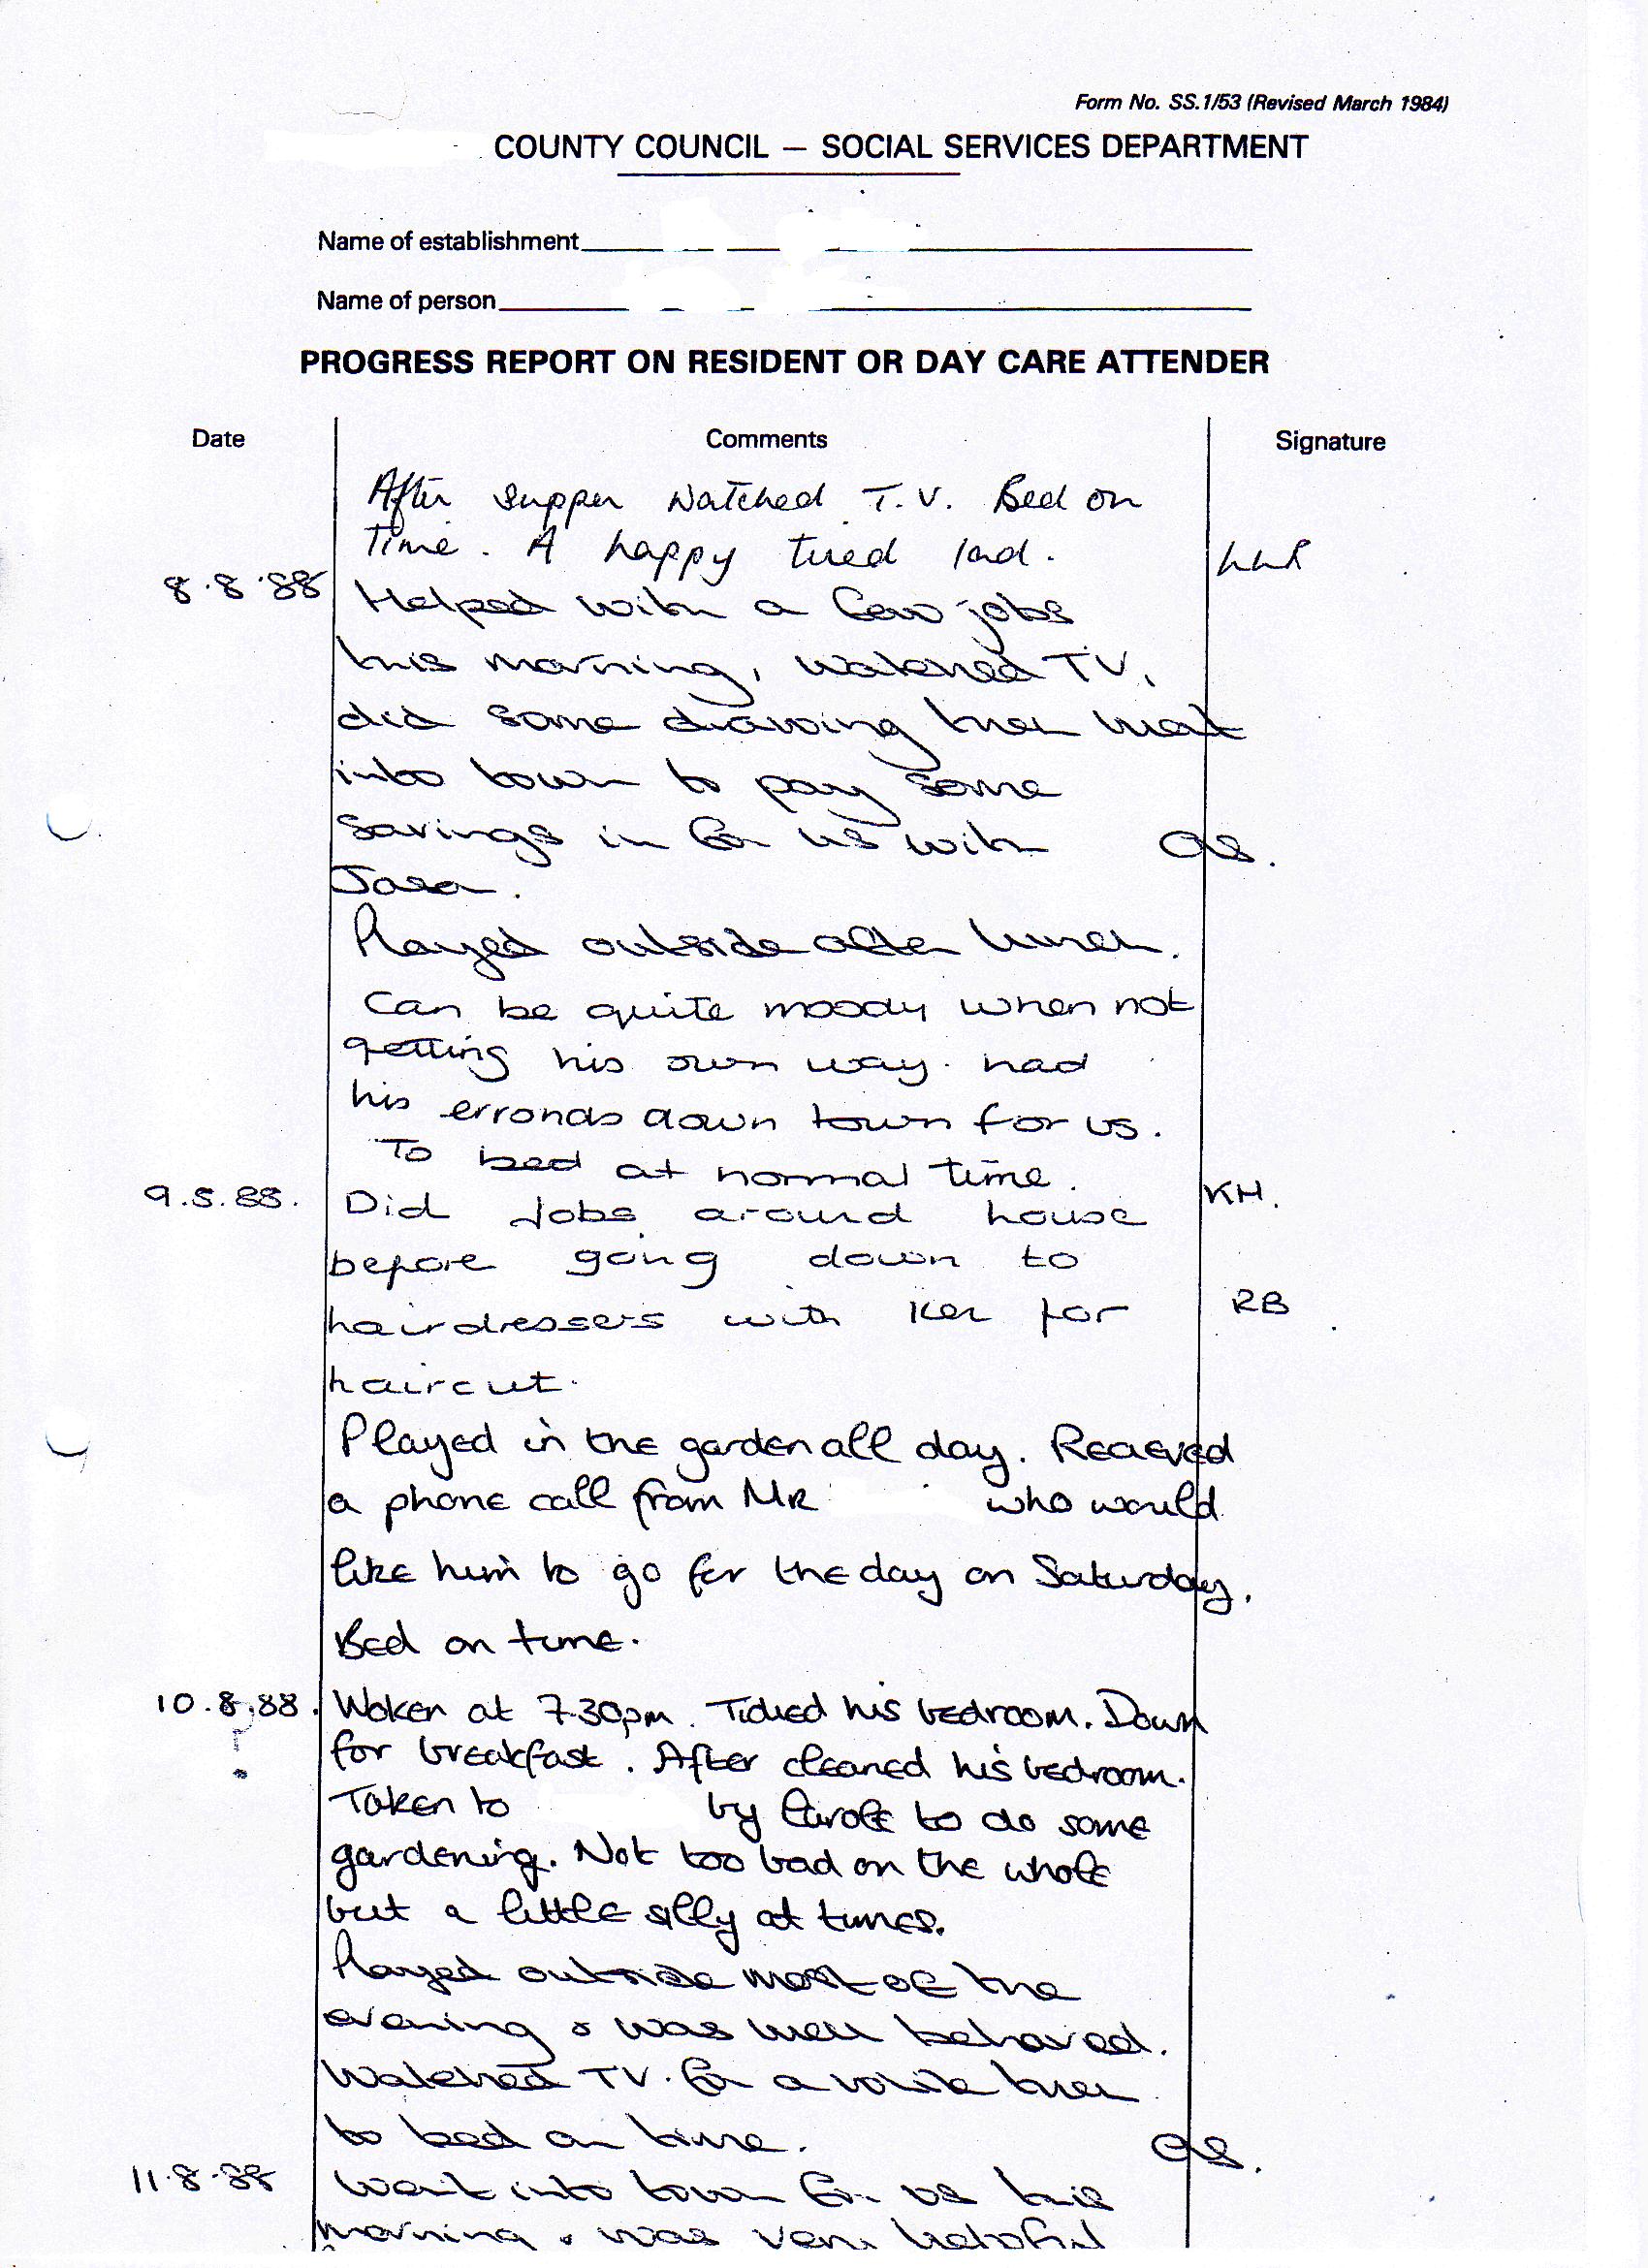 Form No. SS.1/53 (Revised March 1984)
COUNTY COUNCIL — SOCIAL SERVICES DEPARTMENT
Name of establishment
Name of person
PROGRESS REPORT ON RESIDENT OR DAY CARE ATTENDER
Date Comments Signature
After supper watched T.V. Bed on
Time. A happy tired lad.
8.8.88 Helped with a few jobs
this morning, watched TV,
did some drawing then went
into town to pay some
savings in for us with
Played outside after lunch.
Can be quite moody when not
getting his own way. had
his erronds down town for us.
To bed at normal time. KH.
9.8.88. Did Jobs around house
before going down to
hairdressers with Ken for RB
haircut.
Played in the garden all day. Recieved
a phone call from MR who would
like him to go for the day on Saturday.
Bed on time.
10.8.88. Woken at 7.30pm. Tidied his bedroom. Down
? for breakfast. After cleaned his bedroom.
Taken to by Carole to do some
gardening. Not too bad on the whole
but a little silly at times.
Played outside most of the
evening & was well behaved.
Watched TV. for a while then
to bed on time.
11.8.88 Went into town for us this
morning & was very helpful